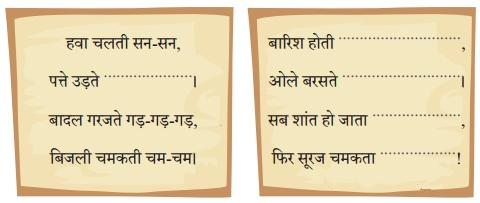 हवा चलती सन-सन,
पत्ते उड़ते ........................।
बादल गरजते गड़-गड़-गड़,
बिजली चमकती चम-चम।
बारिश होती ................................,
ओले बरसते ................................।
सब शांत हो जाता ........................,
फिर सूरज चमकता .....................!